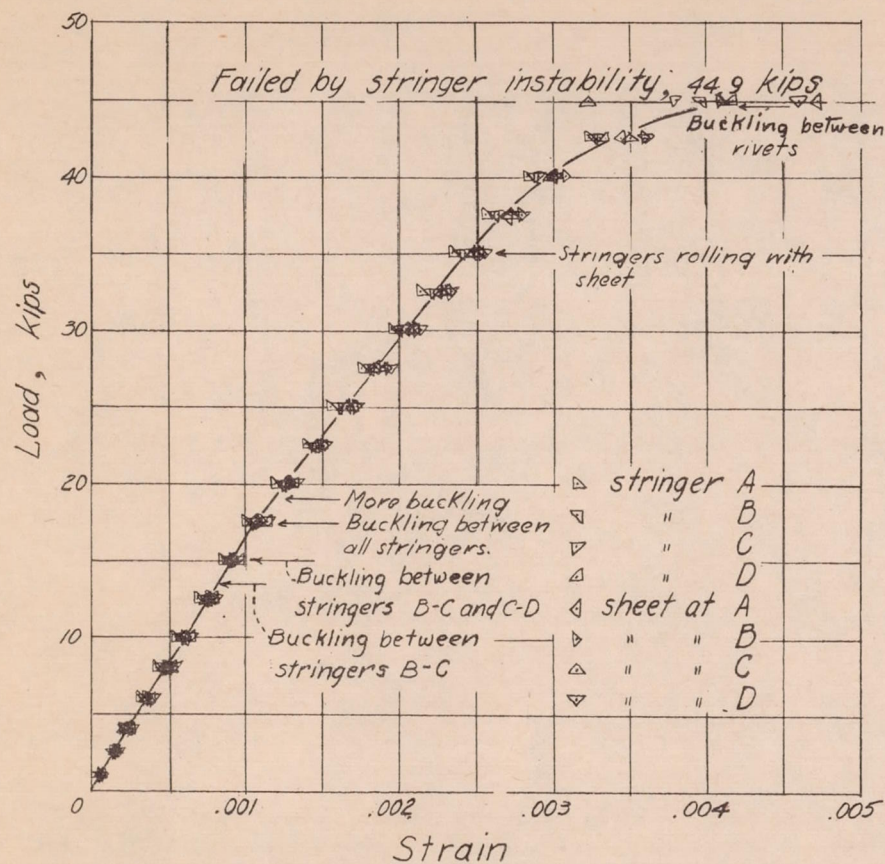 50
Failed by stringer instability, 44.9 kips
Buckling between
rivets
40
Stringers rolling with
sheet
Load, kips
30
20
More buckling
Buckling between
all stringers.
Buckling between
stringers B-C and C-D
10
Buckling between
stringers B-C
stringer A
" B
" C
" D
sheet at A
" " B
" " C
" " D
0 .001 .002 .003 .004 .005
Strain